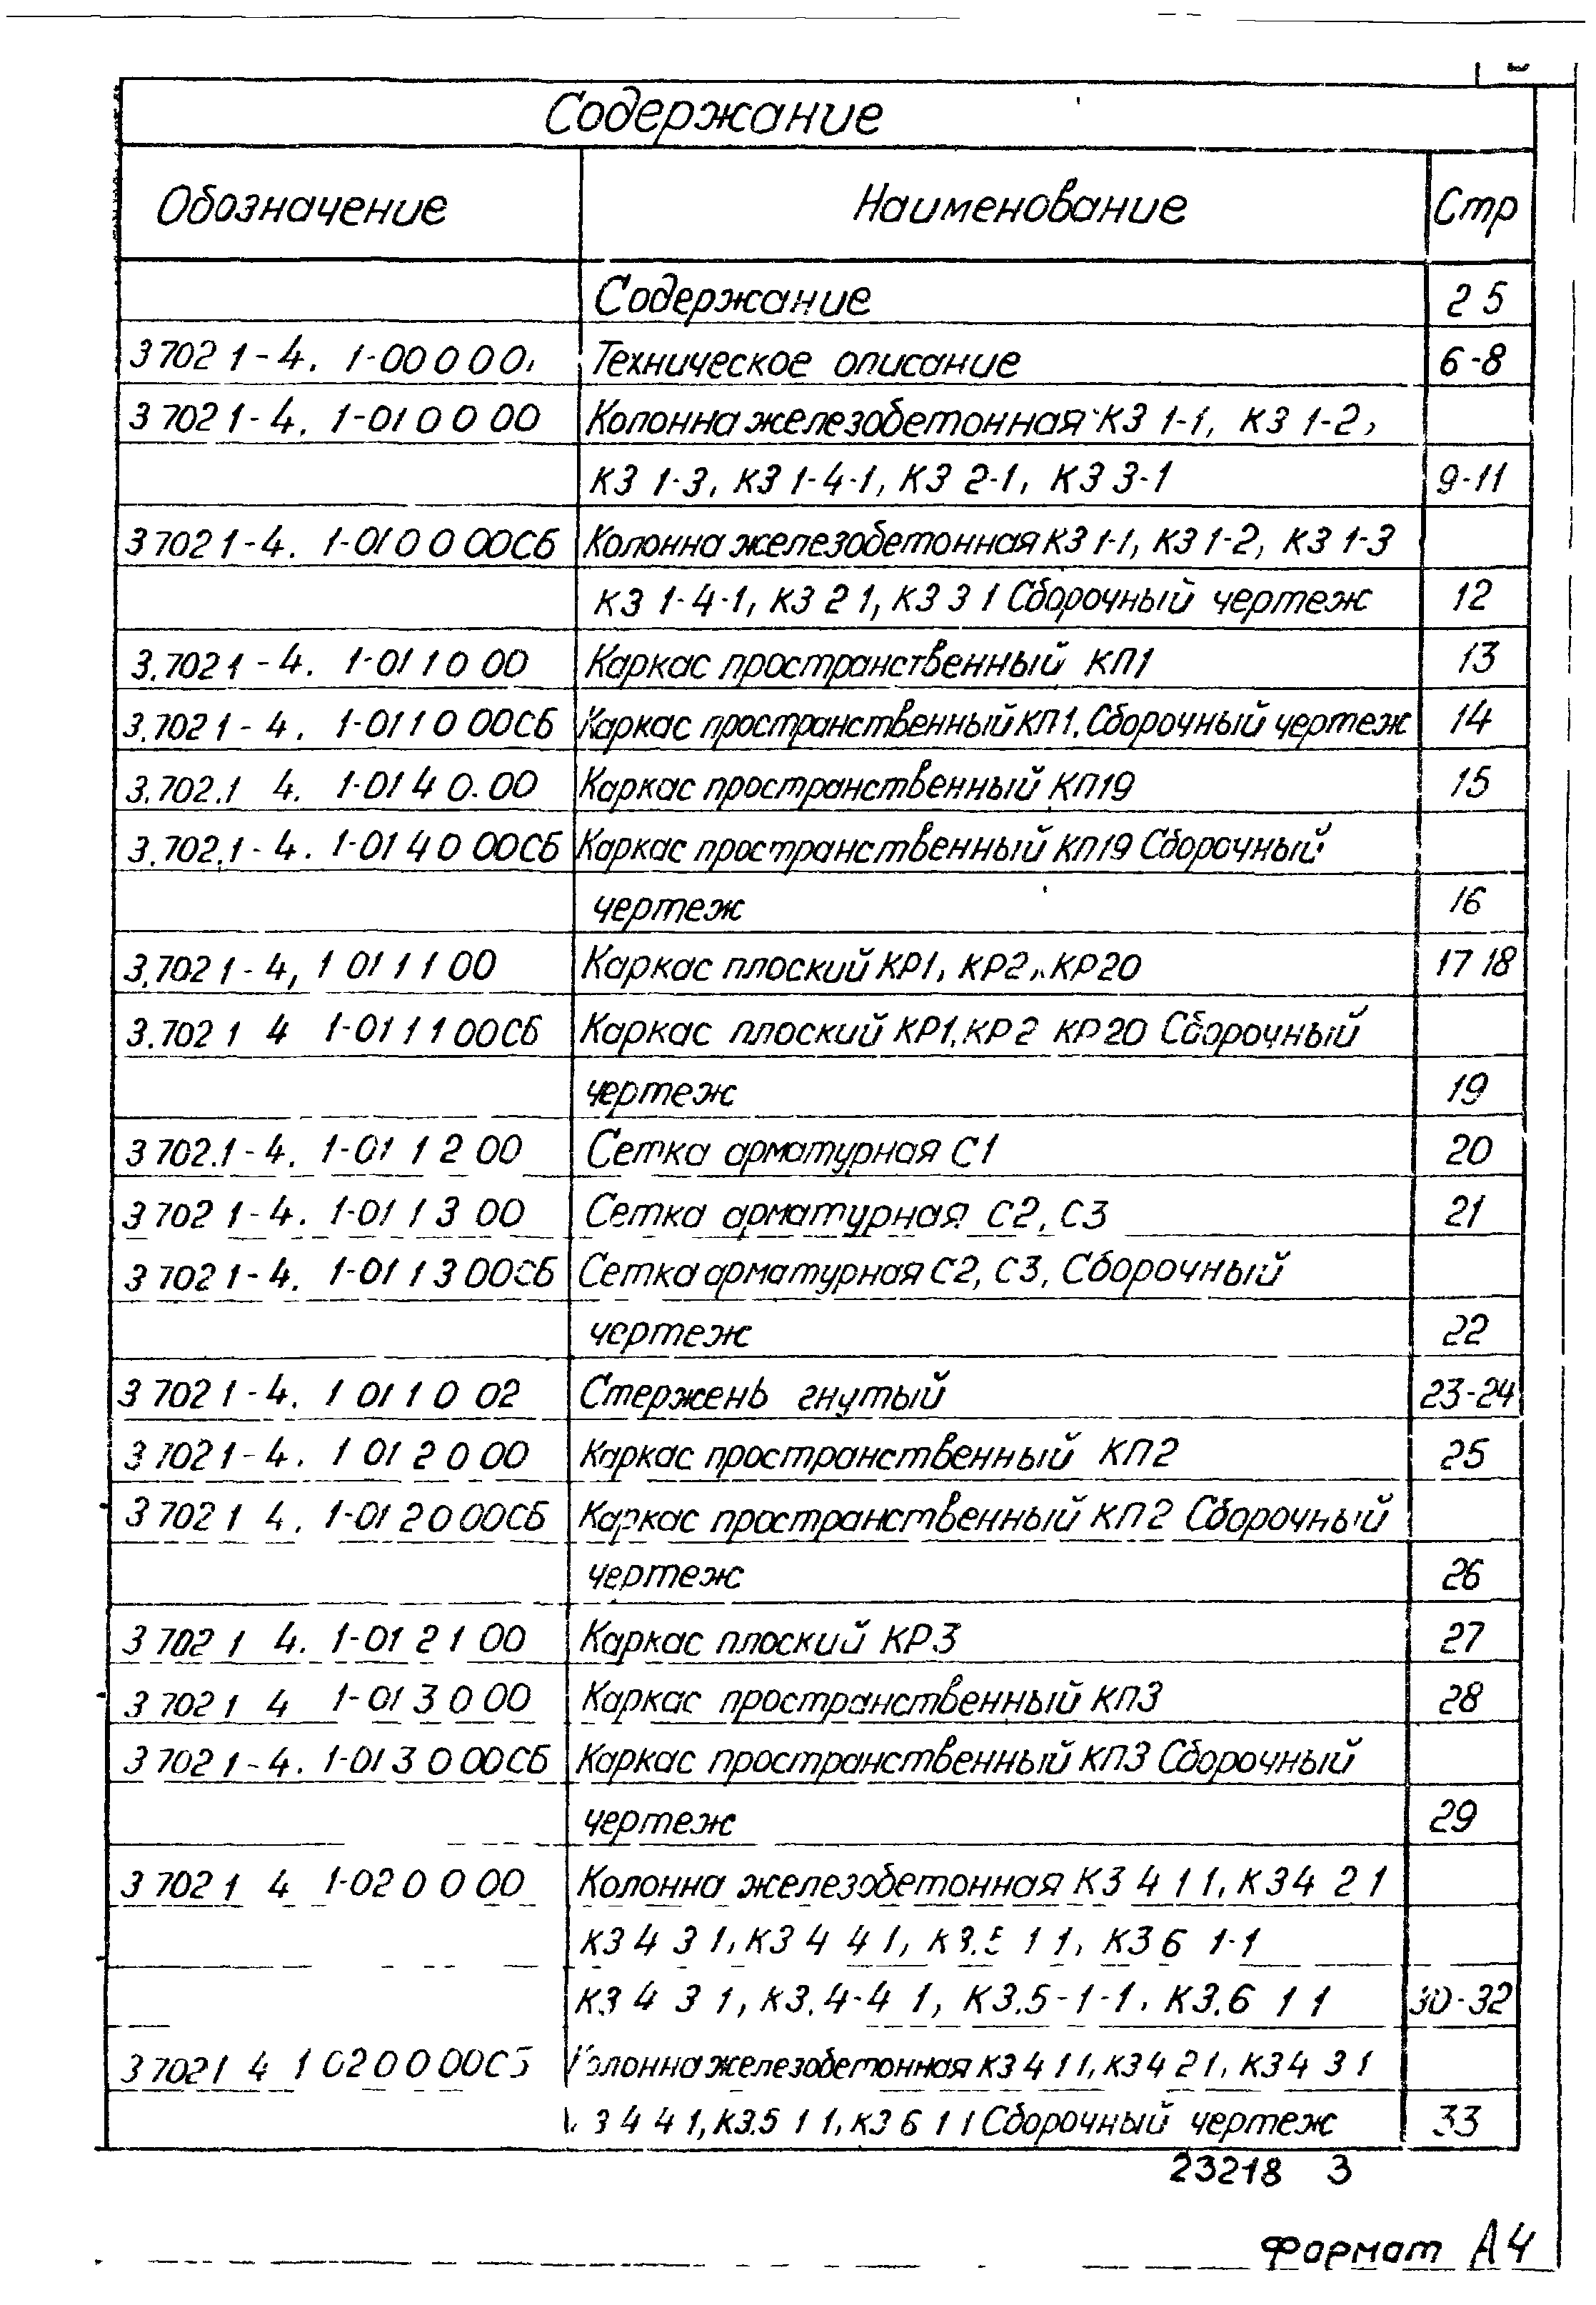 Содержание
Обозначение Наименование Стр
Содержание 2 5
3 702 1-4. 1-00 0 0 0. Техническое описание 6-8
3 702 1-4. 1-01 0 0 00 Колонна железобетонная К3 1-1, К3 1-2,
К3 1-3, К3 1-4-1, К3 2-1, К3 3-1 9-11
3 702 1-4. 1-01 0 0 00СБ Колонна железобетонная К3 1-1, К3 1-2, К3 1-3
К3 1-4-1, К3 2 1, К3 3 1 Сборочный чертеж 12
3.702 1-4. 1-01 1 0 00 Каркас пространственный КП1 13
3.702 1-4. 1-01 1 0 00СБ Каркас пространственный КП1. Сборочный чертеж 14
3.702.1 4. 1-01 4 0.00 Каркас пространственный КП19 15
3.702.1-4. 1-01 4 0 00СБ Каркас пространственный КП19 Сборочный
чертеж 16
3.702 1-4, 1 01 1 1 00 Каркас плоский КР1, КР2, КР20 17 18
3.702 1 4 1-01 1 1 00СБ Каркас плоский КР1, КР2 КР20 Сборочный
чертеж 19
3 702.1-4. 1-01 1 2 00 Сетка арматурная С1 20
3 702 1-4. 1-01 1 3 00 Сетка арматурная С2, С3 21
3 702 1-4. 1-01 1 3 00СБ Сетка арматурная С2, С3, Сборочный
чертеж 22
3 702 1-4. 1 01 1 0 02 Стержень гнутый 23-24
3 702 1-4. 1 01 2 0 00 Каркас пространственный КП2 25
3 702 1 4. 1-01 2 0 00СБ Каркас пространственный КП2 Сборочный
чертеж 26
3 702 1 4. 1-01 2 1 00 Каркас плоский КР3 27
3 702 1 4 1-01 3 0 00 Каркас пространственный КП3 28
3 702 1-4. 1-01 3 0 00СБ Каркас пространственный КП3 Сборочный
чертеж 29
3 702 1 4 1-02 0 0 00 Колонна железобетонная К3 4 1 1, К3 4 2 1
К3 4 3 1, К3 4 4 1, К3.5 1 1, К3 6 1-1
К3 4 3 1, К3.4-4 1, К3.5-1-1, К3.6 1 1 30-32
3 702 1 4 1 02 0 0 00СБ Колонна железобетонная К3 4 1 1, К3 4 2 1, К3 4 3 1
К 3 4 4 1, К3.5 1 1, К3 6 1 1 Сборочный чертеж 33
23218 3
Формат А4